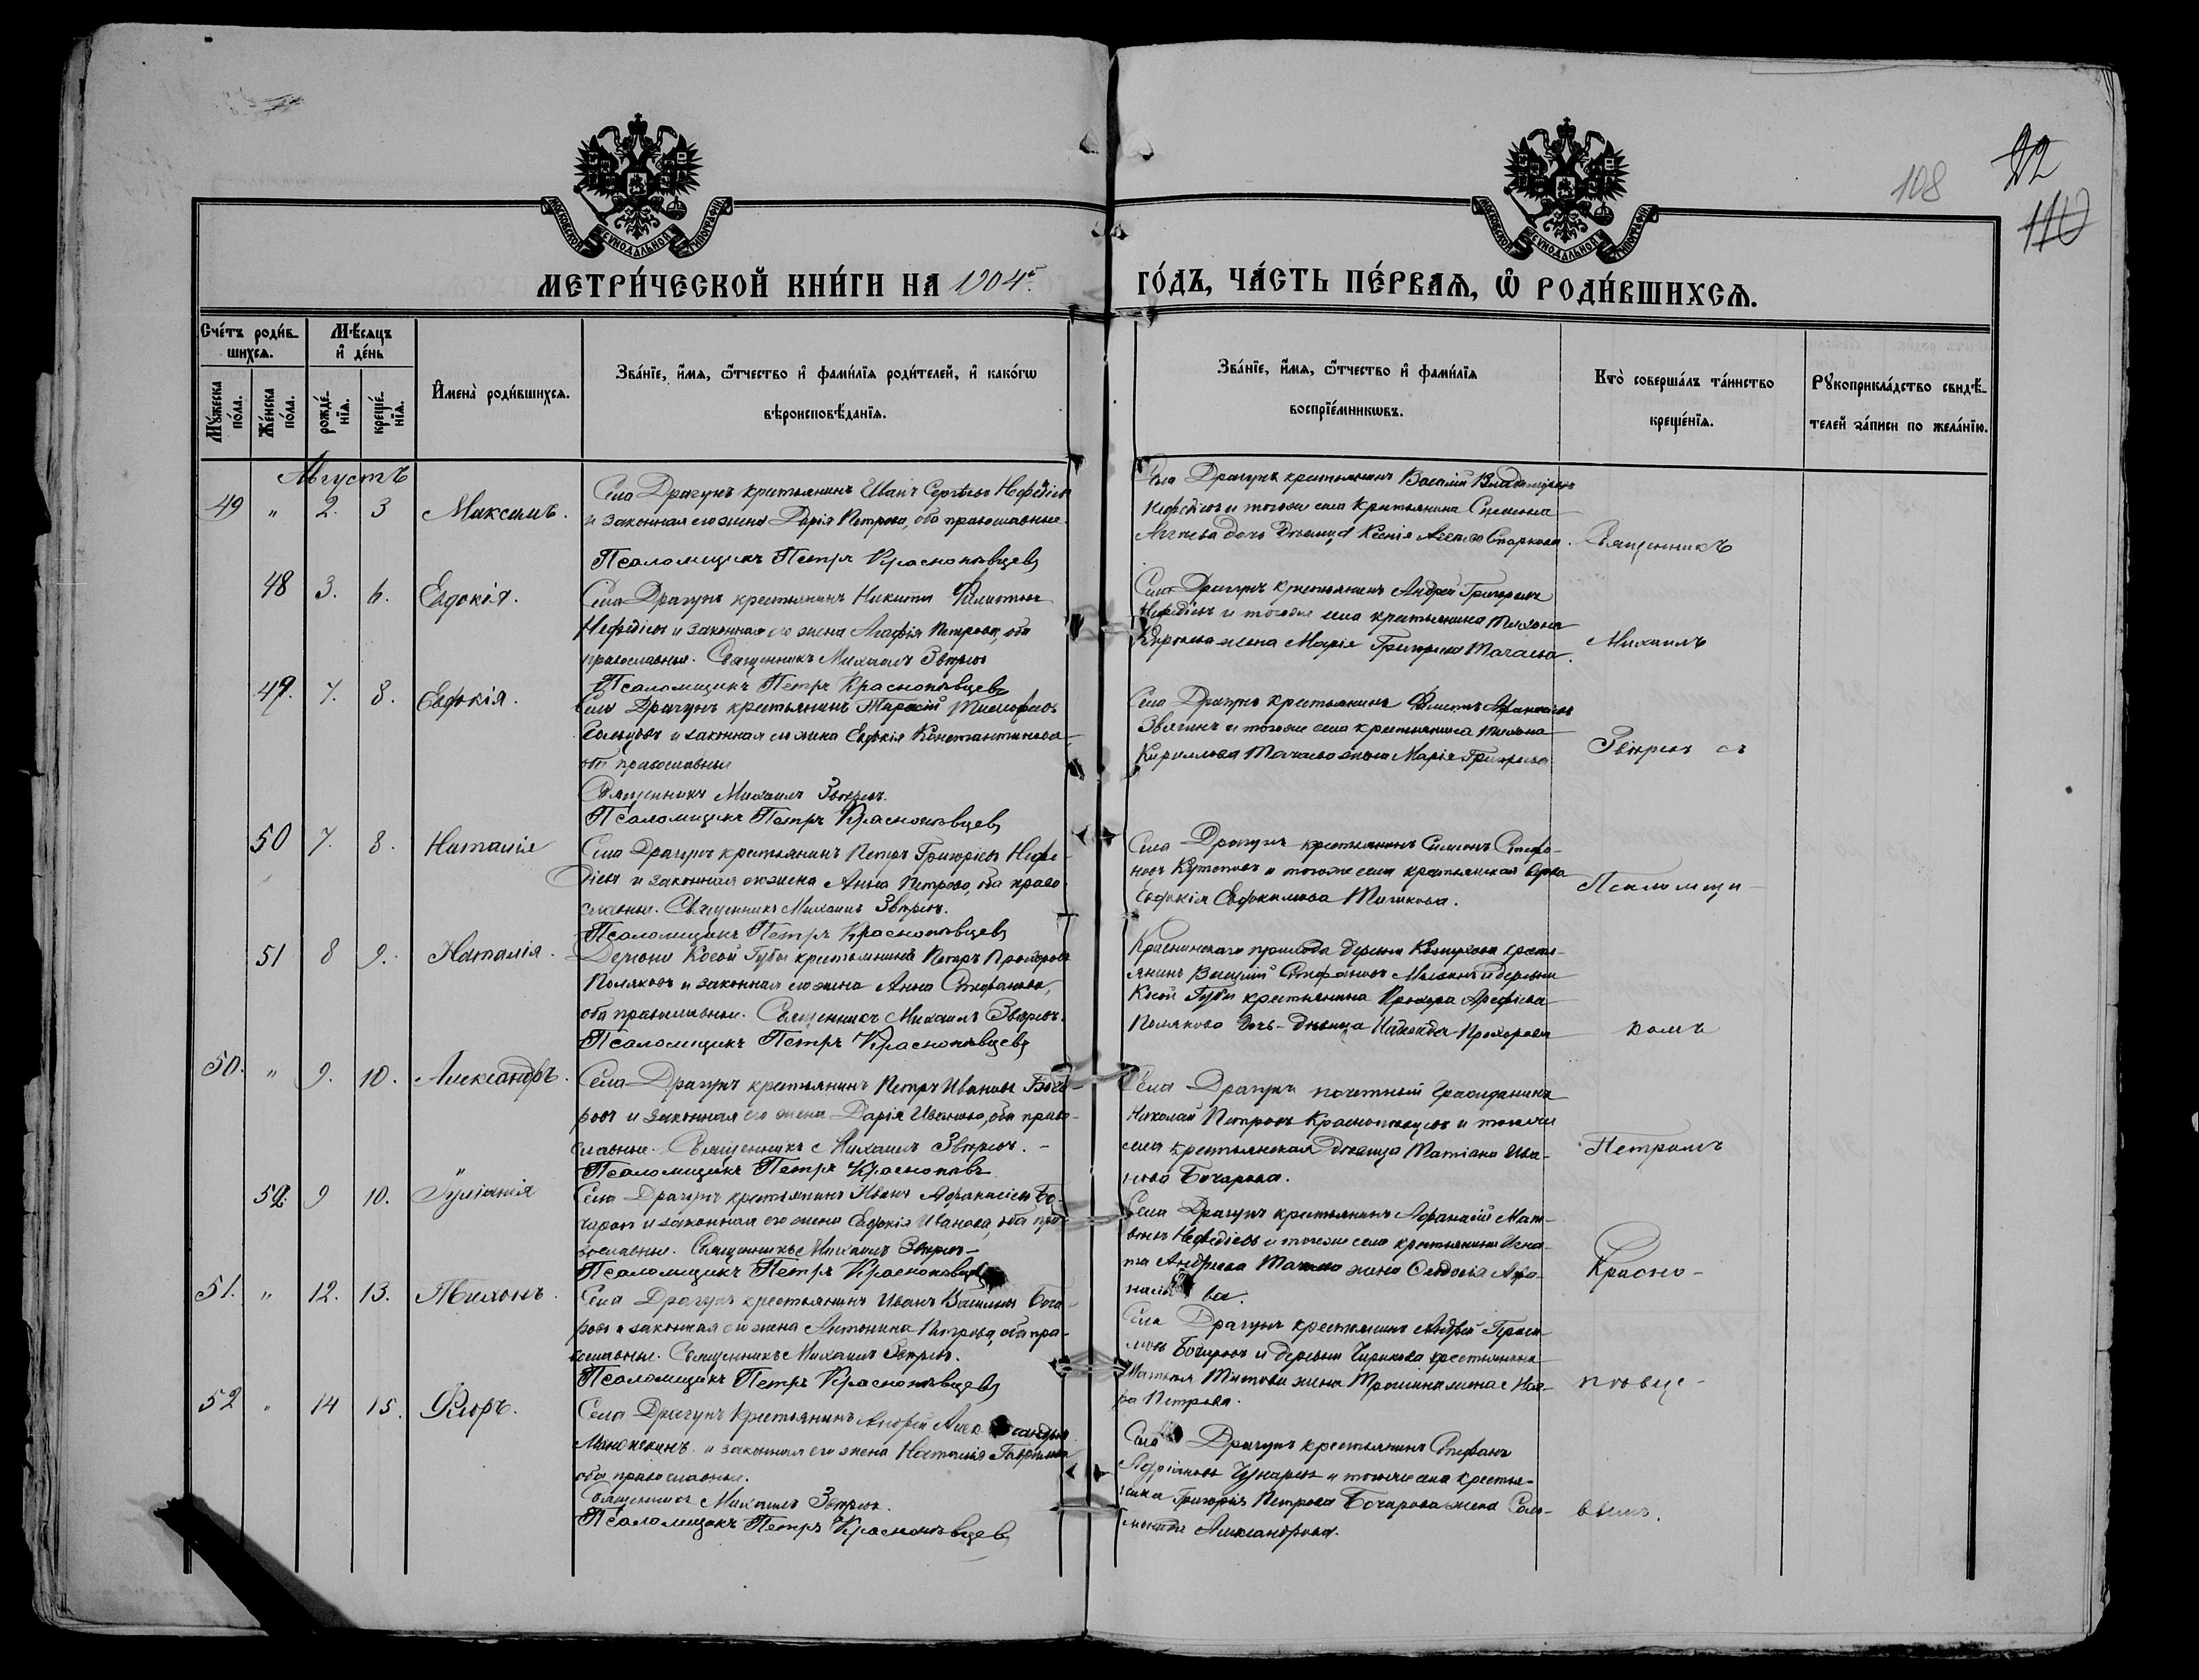 108
22
110
МОСКОВСКОЙ СѴНОДАЛЬНОЙ ТИПОГРАФІИ
МОСКОВСКОЙ СѴНОДАЛЬНОЙ ТИПОГРАФІИ
МЕТРИ́ЧЕСКОЙ КНИ́ГИ НА 1904 г.
ГО́ДЪ, ЧА́СТЬ ПЕ́РВАѦ, Ѿ РОДИ́ВШИХСѦ.
Сче́тъ роди́в-
шихсѧ.
Мѣ́сѧцъ
и҆ де́нь
Мꙋ́жеска по́ла.
Же́нска по́ла.
рожде́-
нїѧ.
креще́-
нїѧ.
И҆мена̀ роди́вшихсѧ.
Зва́нїе, и҆́мѧ, ѻ҆́тчество и҆ фами́лїѧ роди́телей, и҆ како́гѡ
вѣроисповѣ́данїѧ.
Зва́нїе, и҆́мѧ, ѻ҆́тчество и҆ фами́лїѧ
воспрїе́мникѡвъ.
Кто̀ соверша́лъ та́инство
креще́нїѧ.
Рꙋкоприкла́дство свидѣ́-
телей за́писи по жела́нїю.
Августъ
49 " 2. 3 Максимъ.
Села Драгунъ крестьянинъ Иванъ Сергѣевъ Нефедьевъ
и законная его жена Дарія Петрова, оба православные.
Псаломщикъ Петръ Краснопѣвцевъ
Села Драгунъ крестьянинъ Василій Владиміровъ
Нефедьевъ и того же села крестьянина Симеона
дочь дѣвица Ксенія
Священникъ
48 3. 6. Евдокія.
Села Драгунъ крестьянинъ Никита Филиповъ
Нефедьевъ и законная его жена Агафія Петрова, оба
православные. Священникъ Михаилъ Звѣревъ
Псаломщикъ Петръ Краснопѣвцевъ
Села Драгунъ крестьянинъ Андрей Григорьевъ
Нефедьевъ и того же села крестьянина Тихона
жена Марія Григорьева
Михаилъ
49. 7. 8. Евдокія.
Села Драгунъ крестьянинъ Тарасій Тимофеевъ
и законная его жена Евдокія Константинова
оба православные
Священникъ Михаилъ Звѣревъ.
Псаломщикъ Петръ Краснопѣвцевъ
Села Драгунъ крестьянинъ Филиппъ Афанасьевъ
Звягинъ и того же села крестьянина Тихона
Кириллова жена Марія Григорьева
Звѣревъ съ
50 7. 8. Наталія
Села Драгунъ крестьянинъ Петръ Григорьевъ Нефе-
дьевъ и законная его жена Анна Петрова, оба право-
славные. Священникъ Михаилъ Звѣревъ.
Псаломщикъ Петръ Краснопѣвцевъ
Села Драгунъ крестьянинъ Симеонъ Стефа-
новъ и того же села крестьянская вдова
Евдокія Евдокимова
Псаломщи-
51 8 9. Наталія.
Деревни Косой Губы крестьянинъ Петръ Прохоровъ
Поляковъ и законная его жена Анна Стефанова,
оба православные. Священникъ Михаилъ Звѣревъ.
Псаломщикъ Петръ Краснопѣвцевъ
прихода деревни кресть-
янинъ Василій Стефановъ и деревни
Косой Губы крестьянина Прохора Арефьева
Полякова дочь дѣвица Надежда Прохорова
комъ
50. " 9. 10. Александръ.
Села Драгунъ крестьянинъ Петръ Ивановъ Боча-
ровъ и законная его жена Дарія Иванова, оба право-
славные. Священникъ Михаилъ Звѣревъ.
Псаломщикъ Петръ Краснопѣвъ
Села Драгунъ почетный гражданинъ
Николай Петровъ Краснопѣвцевъ и того же
села крестьянская дѣвица Татіана Ива-
нова Бочарова.
Петромъ
52. 9 10. Іуліанія
Села Драгунъ крестьянинъ Иванъ Афанасьевъ Бо-
чаровъ и законная его жена Евдокія Иванова, оба пра-
вославные. Священникъ Михаилъ Звѣревъ
Псаломщикъ Петръ Краснопѣвцевъ
Села Драгунъ крестьянинъ Афанасій Мат-
вѣевъ Нефедьевъ и того же села крестьянина Игна-
та Андреева жена Афа-
насьева.
Красно-
51. " 12. 13. Тихонъ.
Села Драгунъ крестьянинъ Иванъ Васильевъ Боча-
ровъ и законная его жена Антонина Петрова, оба пра-
вославные. Священникъ Михаилъ Звѣревъ.
Псаломщикъ Петръ Краснопѣвцевъ
Села Драгунъ крестьянинъ Андрей Гераси-
мовъ Бочаровъ и деревни Чирикова крестьянина
Матвея Титова жена
Петрова.
пѣвце-
52 " 14 15. Флоръ.
Села Драгунъ крестьянинъ Андрей Александровъ
и законная его жена Наталія Гаврилова
оба православные.
Священникъ Михаилъ Звѣревъ.
Псаломщикъ Петръ Краснопѣвцевъ
Села Драгунъ крестьянинъ Стефанъ
и того же села крестья-
нина Григорія Петрова Бочарова жена Соло-
Александрова.
вымъ.